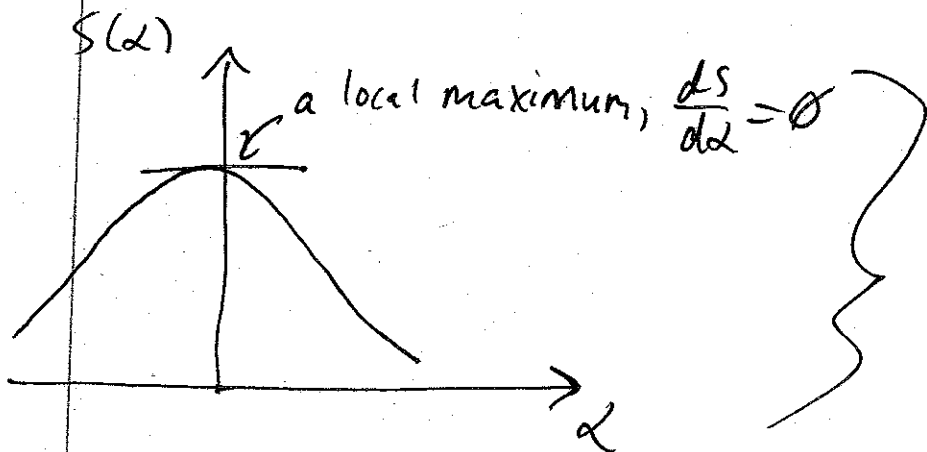 S(α)
a local maximum, dS/dα = 0
α